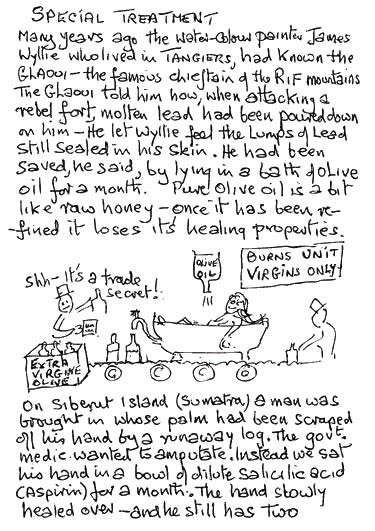 SPECIAL TREATMENT
Many years ago the water-colour painter James
Wyllie who lived in TANGIERS, had known the
GLAOUI - the famous chieftain of the RIF mountains
The Glaoui told him how, when attacking a
rebel fort, molten lead had been poured down
on him - He let Wyllie feel the Lumps of Lead
still sealed in his skin. He had been
saved, he said, by lying in a bath of olive
oil for a month. Pure Olive oil is a bit
like raw honey - once it has been re-
-fined it loses its healing properties.
BURNS UNIT
VIRGINS ONLY!
OLIVE
OIL
shh - it's a trade
secret!
EXTRA
VIRGINE
OLIVE
On Siberut Island (Sumatra) a man was
brought in whose palm had been scraped
off his hand by a runaway log. The govt.
medic wanted to amputate. Instead we sat
his hand in a bowl of dilute salicilic acid
(aspirin) for a month. The hand slowly
healed over - and he still has two